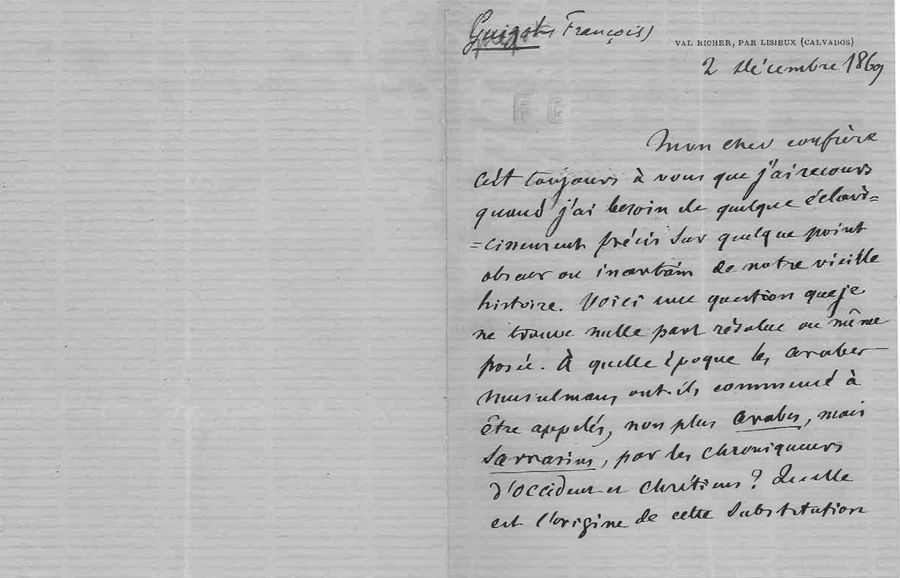 Guizot (François)
VAL RICHER, PAR LISIEUX (CALVADOS)
2 Décembre 1869
F G
Mon cher confrère
C'est toujours à vous que j'ai recours
quand j'ai besoin de quelque éclair=
=cissement précis sur quelque point
obscur ou incertain de notre vieille
histoire. Voici une question que je
ne trouve nulle part résolue ou même
posée. À quelle époque les arabes
musulmans ont-ils commencé à
être appelés, non plus arabes, mais
Sarrasins, par les chroniqueurs
d'occident et chrétiens ? Quelle
est l'origine de cette substitution